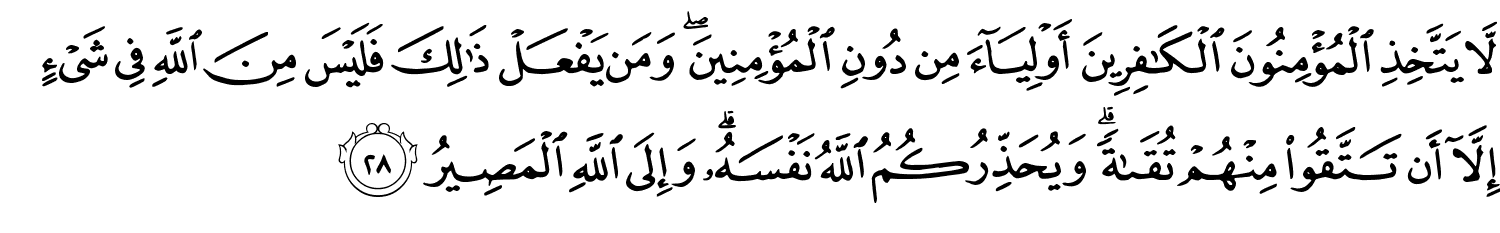 لَّا يَتَّخِذِ ٱلْمُؤْمِنُونَ ٱلْكَـٰفِرِينَ أَوْلِيَآءَ مِن دُونِ ٱلْمُؤْمِنِينَ ۖ وَمَن يَفْعَلْ ذَٰلِكَ فَلَيْسَ مِنَ ٱللَّهِ فِى شَىْءٍ
إِلَّآ أَن تَتَّقُوا۟ مِنْهُمْ تُقَىٰةً ۗ وَيُحَذِّرُكُمُ ٱللَّهُ نَفْسَهُۥ ۗ وَإِلَى ٱللَّهِ ٱلْمَصِيرُ ٢٨